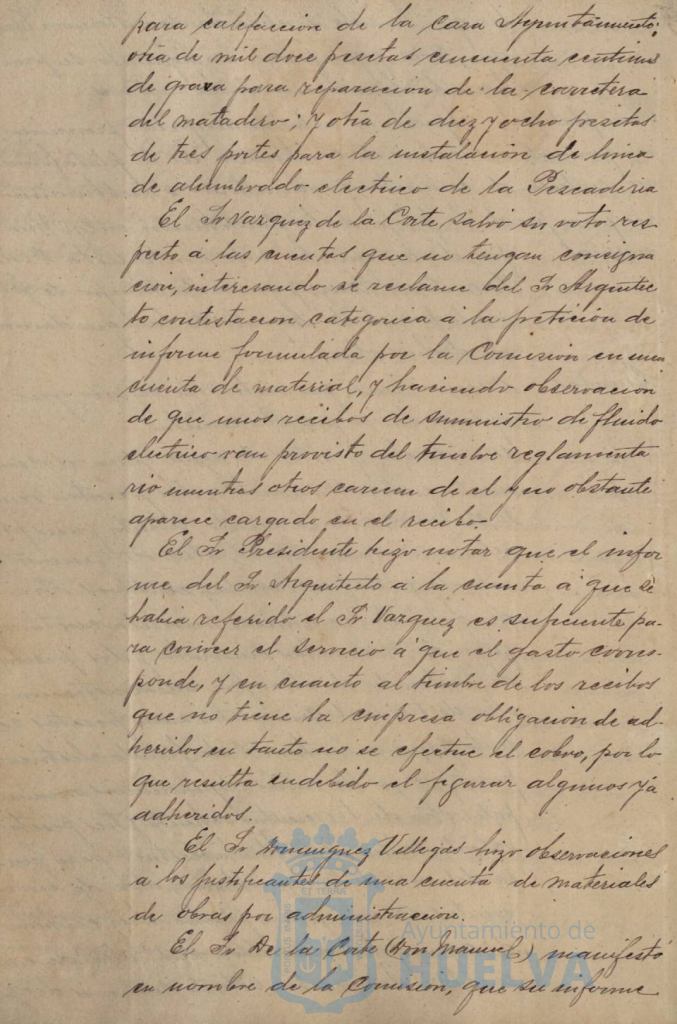 para calefacción de la casa Ayuntamiento;
otra de mil doce pesetas cincuenta centimos
de grava para reparacion de la carretera
del matadero; y otra de diez y ocho pesetas
de tres portes para la instalación de linea
de alumbrado electrico de la Pescaderia
El Sr Vazquez de la Corte salvó su voto res
pecto á las cuentas que no tengan consigna
cion, interesando se reclame del Sr Arquitec
to contestacion categorica á la petición de
informe formulada por la Comisión en una
cuenta de material, y haciendo observacion
de que unos recibos de suministro de fluido
electrico van provisto del timbre reglamenta
rio mientras otros carecen de el y no obstante
aparece cargado en el recibo.
El Sr Presidente hizo notar que el infor
me del Sr Arquitecto á la cuenta á que se
habia referido el Sr Vazquez es suficiente pa-
ra conocer el servicio á que el gasto corres-
ponde, y en cuanto al timbre de los recibos
que no tiene la empresa obligacion de ad-
herirlos en tanto no se efectue el cobro, por lo
que resulta indebido el figurar algunos ya
adheridos.
El Sr Dominguez Villegas hizo observaciones
á los justificantes de una cuenta de materiales
de obras por administracion.
El Sr De la Corte (Don Manuel) manifestó
en nombre de la Comision, que su informe
Ayuntamiento de
HUELVA